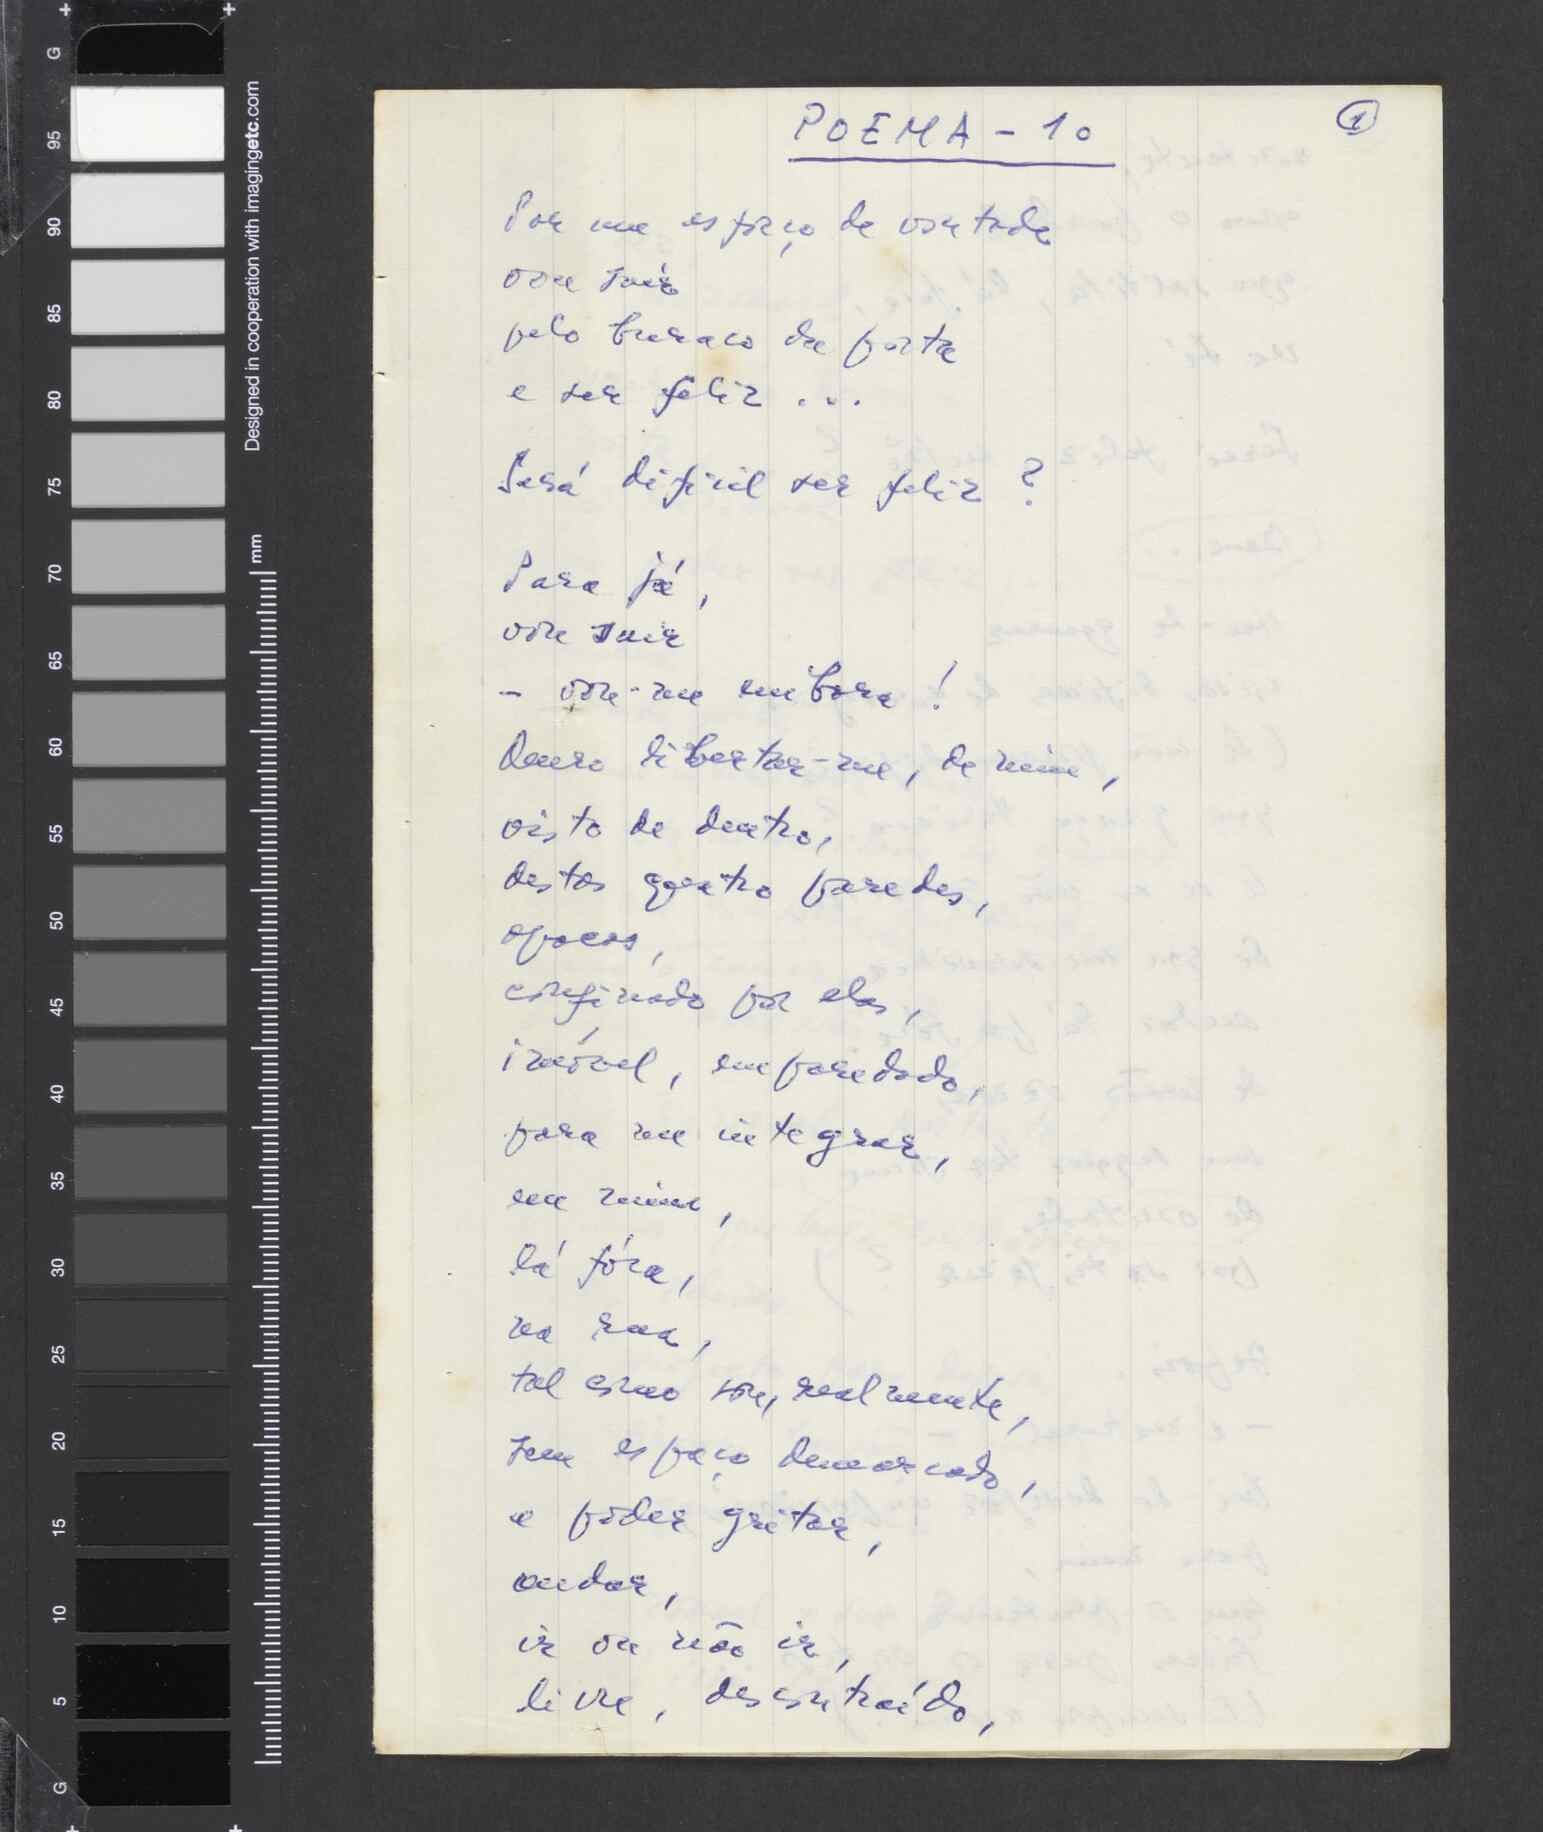 POEMA - 10
1
Por um esforço de vontade
vou sair
pelo buraco da porta
e ser feliz ...
Será difícil ser feliz ?
Para já,
vou sair
- vou-me embora !
Quero libertar-me, de mim,
visto de dentro,
destas quatro paredes,
opacas,
confinado por elas,
imóvel, emparedado,
para me integrar,
em mim,
lá fóra,
na rua,
tal como sou, realmente,
sem espaço demarcado,
e poder gritar,
andar,
ir ou não ir,
livre, descontraído,
Designed in cooperation with imagingetc.com
mm
G
95
90
85
80
75
70
65
60
55
50
45
40
35
30
25
20
15
10
5
G